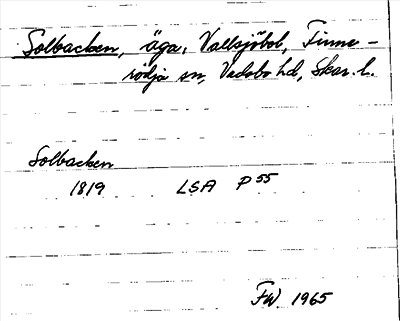 Solbacken, äga, Vallsjöbol, Finne-
rödja sn, Vadsbo hd, Skar. l.
Solbacken
1819 LSA P 55
FW 1965